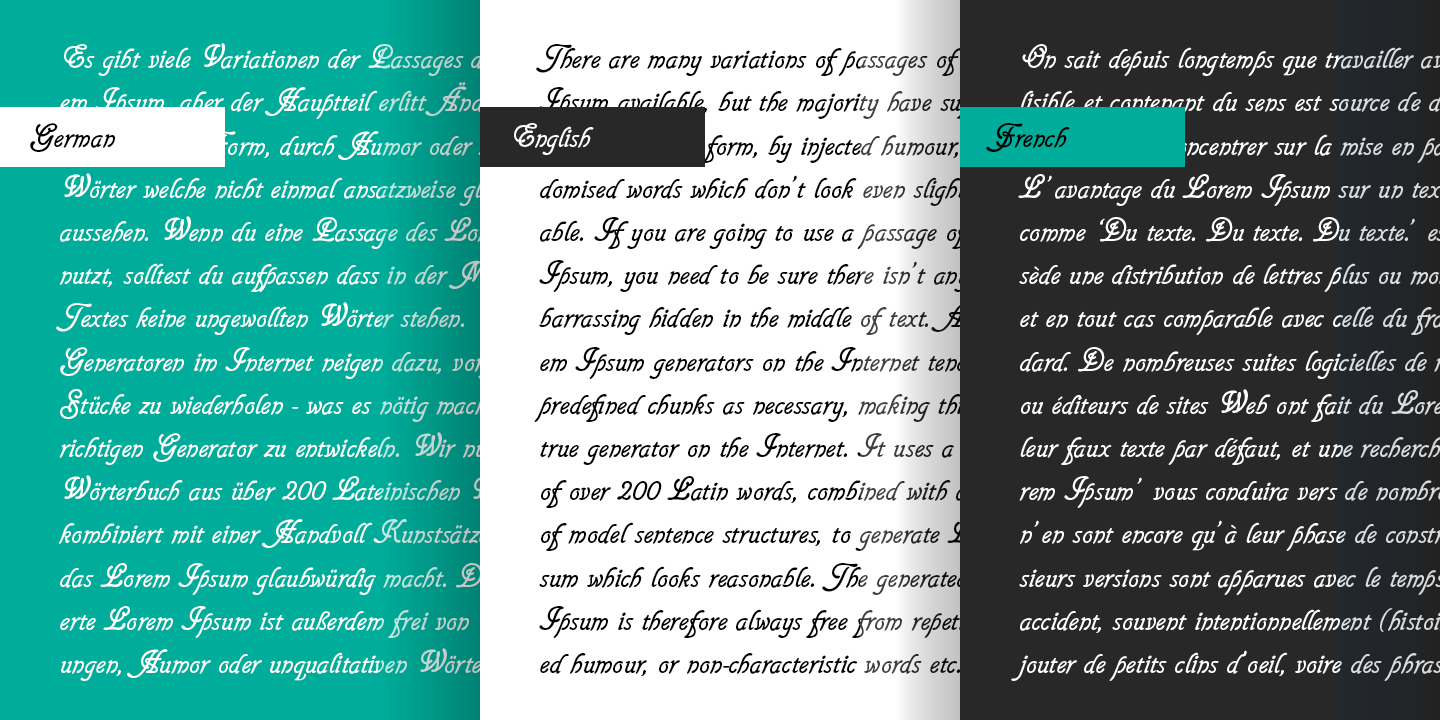 German
Es gibt viele Variationen der Passages
em Ipsum, aber der Hauptteil erlitt
form, durch Humor oder
Wörter welche nicht einmal ansatzweise
aussehen. Wenn du eine Passage des
nutzt, solltest du aufpassen dass in der
Textes keine ungewollten Wörter stehen.
Generatoren im Internet neigen dazu,
Stücke zu wiederholen - was es nötig
richtigen Generator zu entwickeln. Wir
Wörterbuch aus über 200 Lateinischen
kombiniert mit einer Handvoll
das Lorem Ipsum glaubwürdig macht.
erte Lorem Ipsum ist außerdem frei von
ungen, Humor oder unqualitativen
English
There are many variations of passages of
Ipsum available, but the majority have
form, by injected humour,
domised words which don't look even
able. If you are going to use a passage
Ipsum, you need to be sure there isn't
barrassing hidden in the middle of text.
em Ipsum generators on the Internet
predefined chunks as necessary, making
true generator on the Internet. It uses a
of over 200 Latin words, combined with
of model sentence structures, to generate
sum which looks reasonable. The
Ipsum is therefore always free from
ed humour, or non-characteristic words etc.
French
On sait depuis longtemps que travailler
lisible et contenant du sens est source de
sur la mise en
L'avantage du Lorem Ipsum sur un
comme 'Du texte. Du texte. Du texte.'
sède une distribution de lettres plus ou
et en tout cas comparable avec celle du
dard. De nombreuses suites logicielles de
ou éditeurs de sites Web ont fait du
leur faux texte par défaut, et une
rem Ipsum' vous conduira vers de
n'en sont encore qu'à leur phase de
sieurs versions sont apparues avec le
accident, souvent intentionnellement
jouter de petits clins d'oeil, voire des